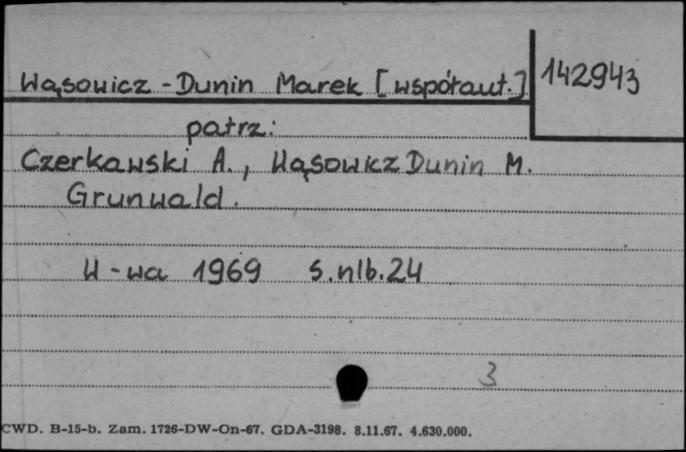 Wąsowicz-Dunin Marek [współaut.] 142943
patrz:
Czerkawski A., Wąsowicz Dunin M.
Grunwald.
W-wa 1969 s.nlb.24
3
CWD. B-15-b. Zam. 1726-DW-On-67. GDA-3198. 8.11.67. 4.630.000.